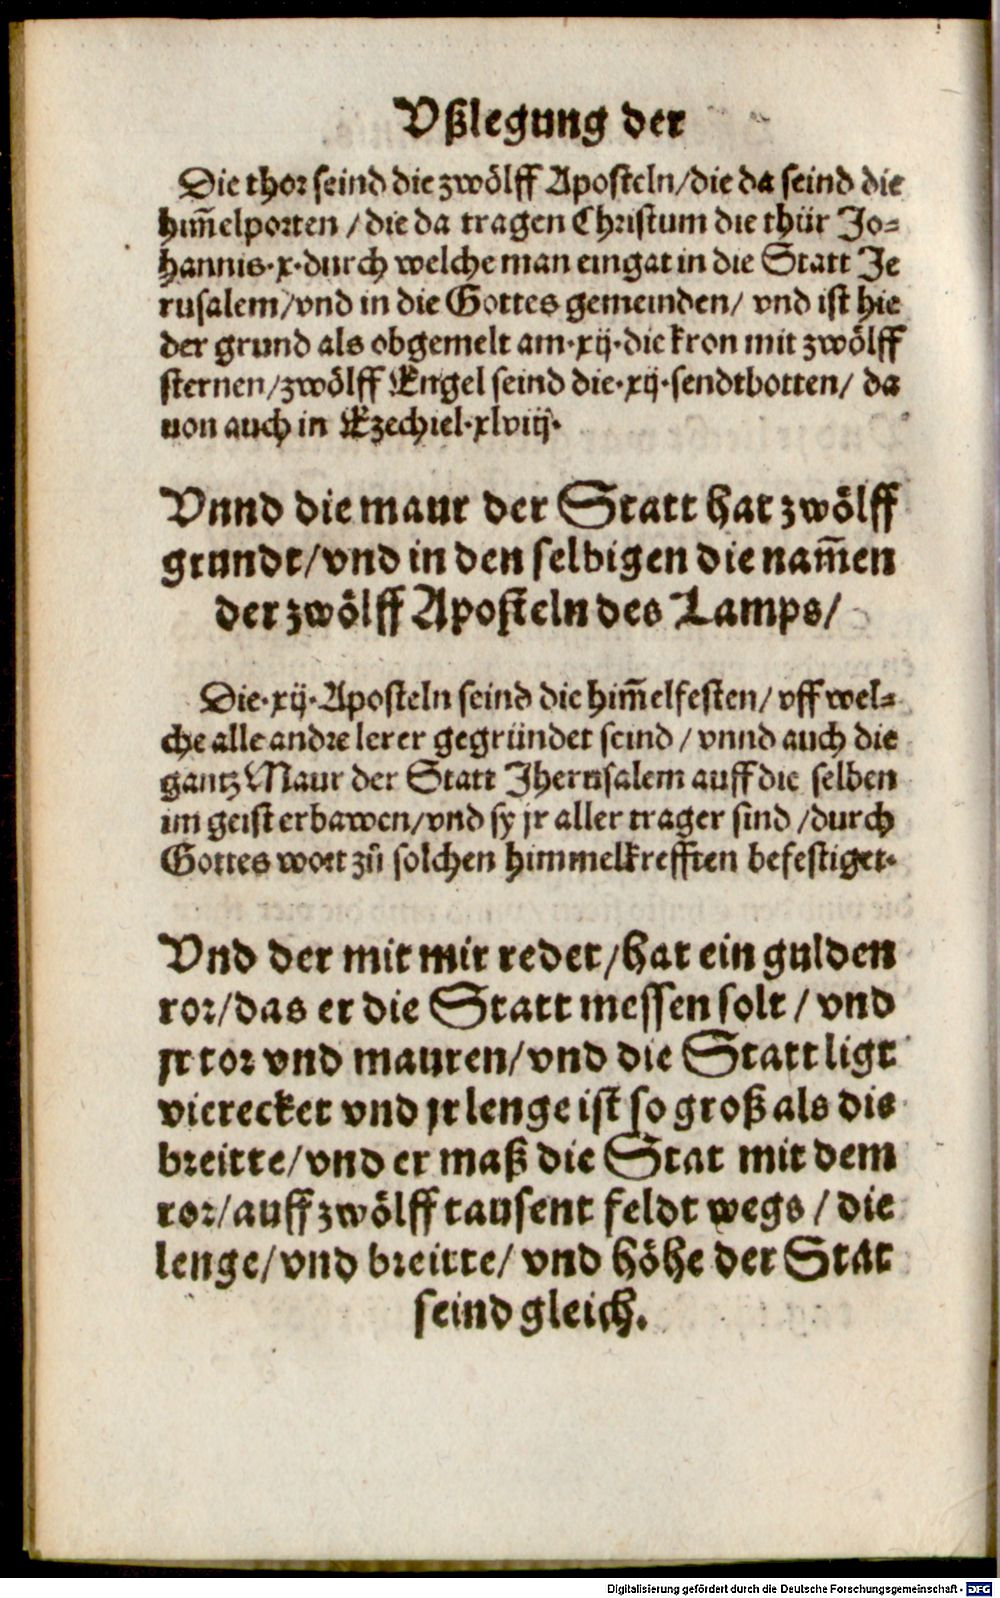 Vßlegung der
Die thor seind die zwölff Aposteln/die da seind die
him̄elporten /die da tragen Christum die thür Jo-
hannis·x·durch welche man eingat in die Statt Je
rusalem/vnd in die Gottes gemeinden/ vnd ist hie
der grund als obgemelt am·xij·die kron mit zwölff
sternen/zwölff Engel seind die·xij·sendtbotten/ da
uon auch in Ezechiel·xlviij·
Vnnd die maur der Statt hat zwölff
grundt/vnd in den selbigen die nam̄en
der zwölff Aposteln des Lamps/
Die·xij·Aposteln seind die him̄elfesten/ vff wel-
che alle andre lerer gegründet seind / vnnd auch die
gantz Maur der Statt Jherusalem auff die selben
im geist erbawen/vnd sy jr aller trager sind /durch
Gottes wort zů solchen himmelkrefften befestiget·
Vnd der mit mir redet/hat ein gulden
ror/das er die Statt messen solt / vnd
jr tor vnd mauren/vnd die Statt ligt
vierecket vnd jr lenge ist so groß als die
breitte/vnd er maß die Stat mit dem
ror/auff zwölff tausent feldt wegs / die
lenge/vnd breitte/ vnd höhe der Stat
seind gleich.
Digitalisierung gefördert durch die Deutsche Forschungsgemeinschaft - DFG